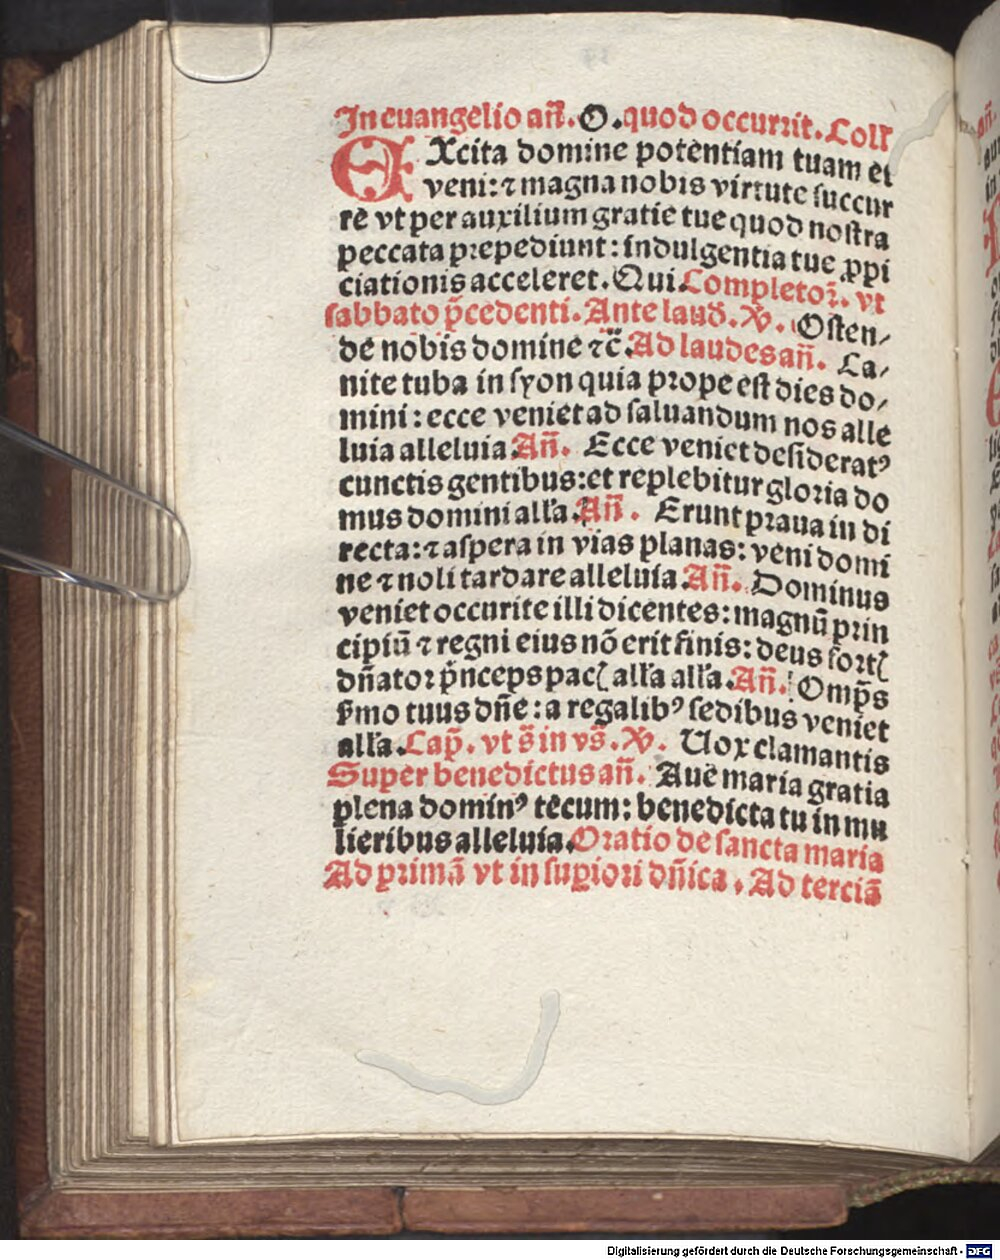 In euangelio añ. O. quod occurrit. Coll'
EXcita domine potentiam tuam et
veni: ⁊ magna nobis virtute succur
re vt per auxilium gratie tue quod nostra
peccata prepediunt: indulgentia tue ꝓpi
ciationis acceleret. Qui Completoꝝ. vt
sabbato p̃cedenti. Ante laud̃. ꝶ. Osten/
de nobis domine ⁊c̃. Ad laudes añ. Ca/
nite tuba in syon quia prope est dies do/
mini: ecce veniet ad saluandum nos alle
luia alleluia Añ. Ecce veniet desideratꝰ
cunctis gentibus: et replebitur gloria do
mus domini alĺa. Añ. Erunt praua in di
recta: ⁊ aspera in vias planas: veni domi
ne ⁊ noli tardare alleluia. Añ. Dominus
veniet occurite illi dicentes: magnũ prin
cipiũ ⁊ regni eius nõ erit finis: deus fortꝭ
dñator p̃nceps pacꝭ alĺa alĺa. Añ. Omp̃s
s̃mo tuus dñe: a regalibꝰ sedibus veniet
alĺa. Cap̃. vt s̃ in vs̃. ꝶ. Uox clamantis
Super benedictus añ. Aue maria gratia
plena dominꝰ tecum: benedicta tu in mu
lieribus alleluia. Oratio de sancta maria
Ad primã vt in supiori dñica. Ad terciã
Digitalisierung gefördert durch die Deutsche Forschungsgemeinschaft - DFG